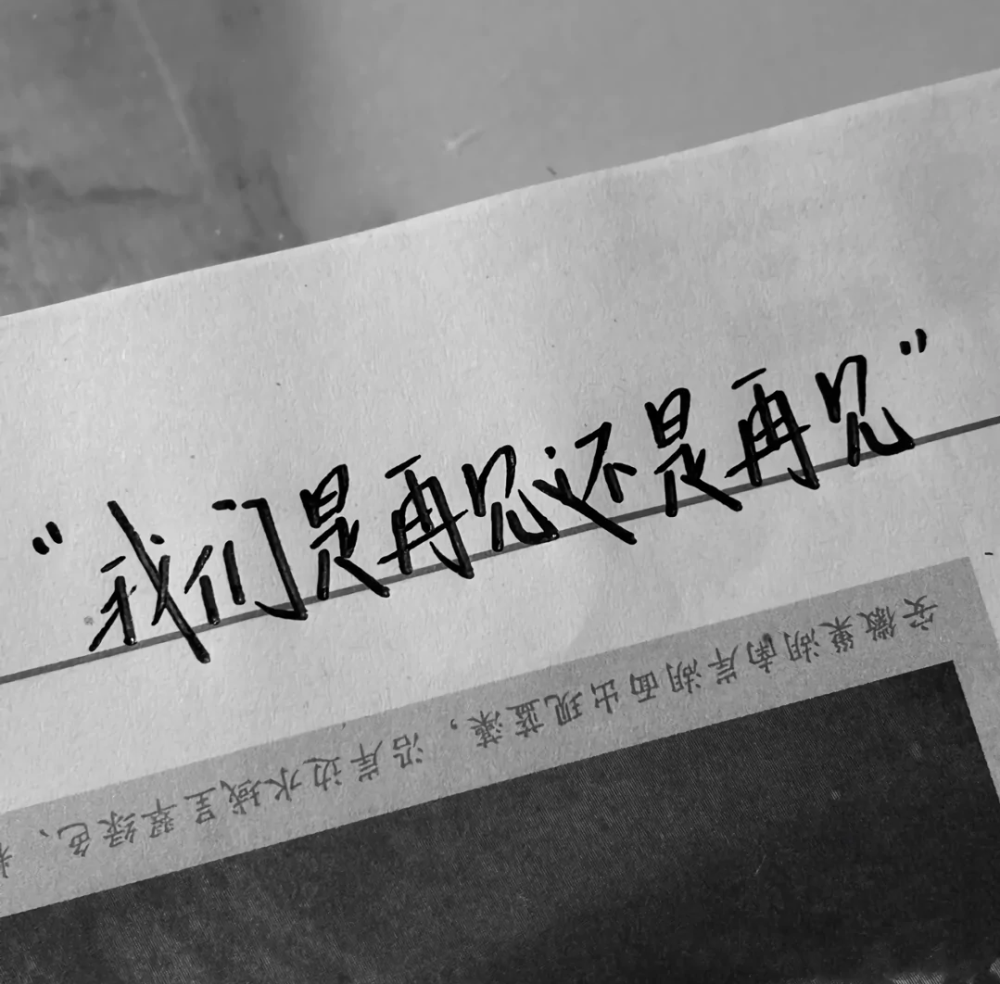 “我们是再见还是再见”
安徽巢湖南岸湖面出现蓝藻，沿岸边水域呈翠绿色、